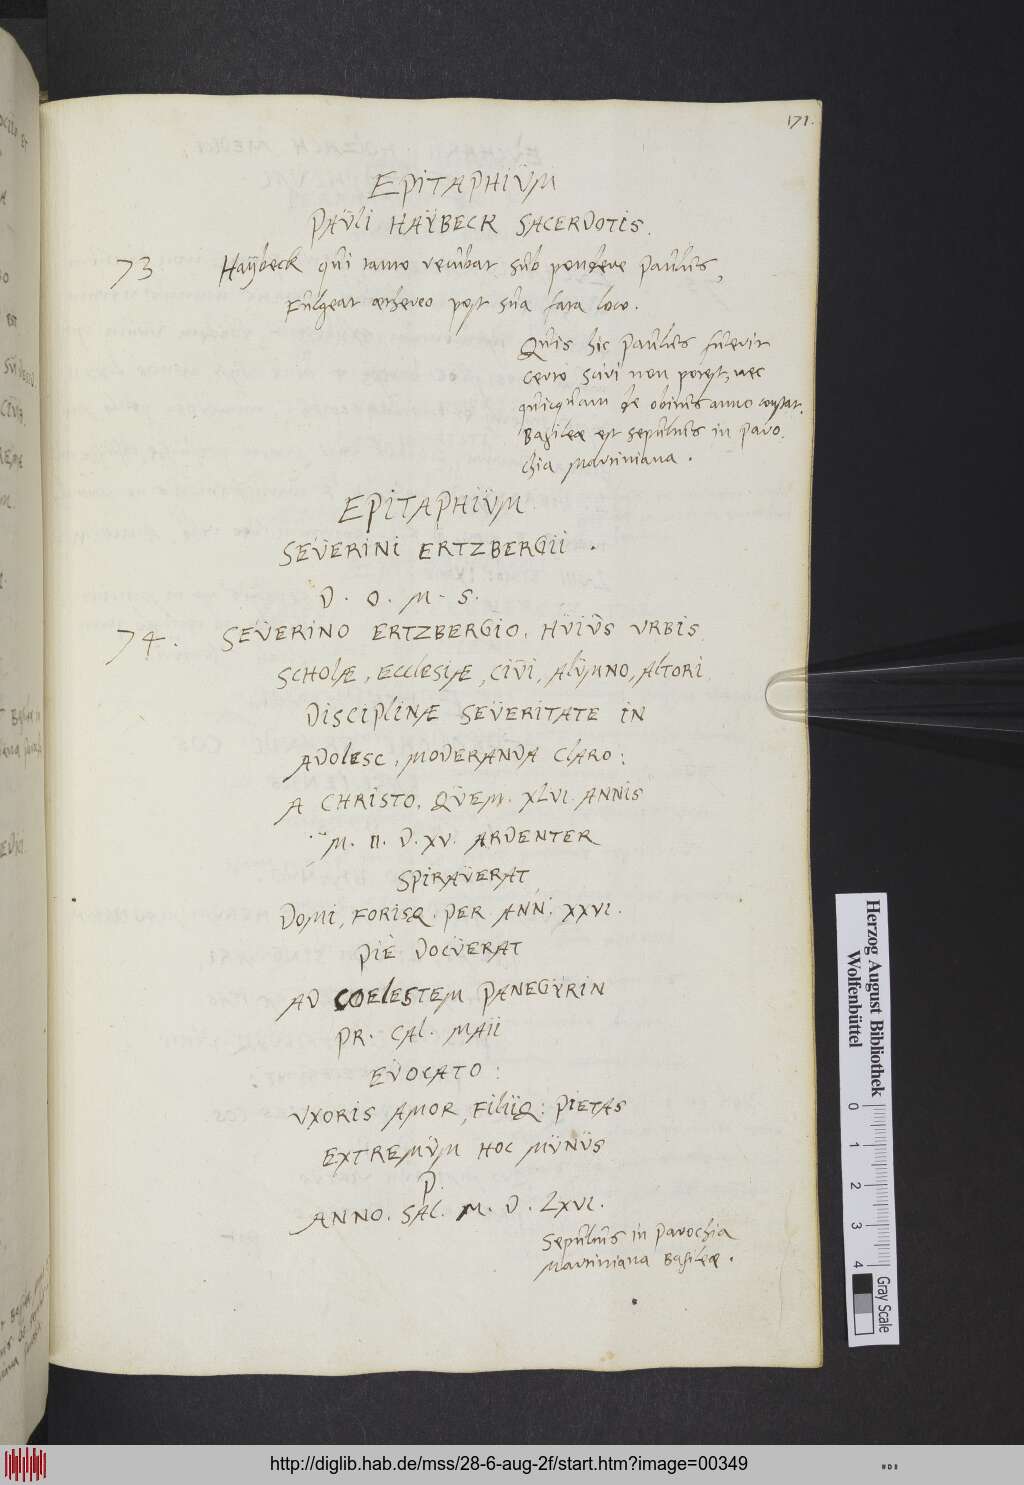 171.
EPITAPHIÜM
PAÜLI HAŸBECK SACERDOTIS.
73 Haÿbeck qui tanto recubat sub pondere Paulus,
Fulgeat æthereo post sua fata loco.
Quis hic Paulus fuerit
certo sciri non potest, nec
quicquam de obitus anno constat.
Basileæ est sepultus in Paro
chia Martiniana.
EPITAPHIÜM
SEÜERINI ERTZBERGII.
D. O. M. S.
74. SEÜERINO ERTZBERGIO, HÜIÜS VRBIS
SCHOLÆ, ECCLESIÆ, CIÜI, ALÜMNO, ALTORI
DISCIPLINÆ SEÜERITATE IN
ADOLESC. MODERANDA CLARO:
A CHRISTO, QÜEM. XLVI. ANNIS
M. II. D. XV. ARDENTER
SPIRAÜERAT
DOMI, FORISQ. PER ANN. XXVI.
PIÈ DOCÜERAT
AD COELESTEM PANEGŸRIN
PR. CAL. MAII
EÜOCATO:
VXORIS AMOR, FILIIQ: PIETAS
EXTREMÜM HOC MÜNÜS
P.
ANNO. SAL. M. D. LXVI.
Sepultus in Parochia
Martiniana Basileæ.
Herzog August Bibliothek
Wolfenbüttel
0 1 2 3 4
Gray Scale
http://diglib.hab.de/mss/28-6-aug-2f/start.htm?image=00349